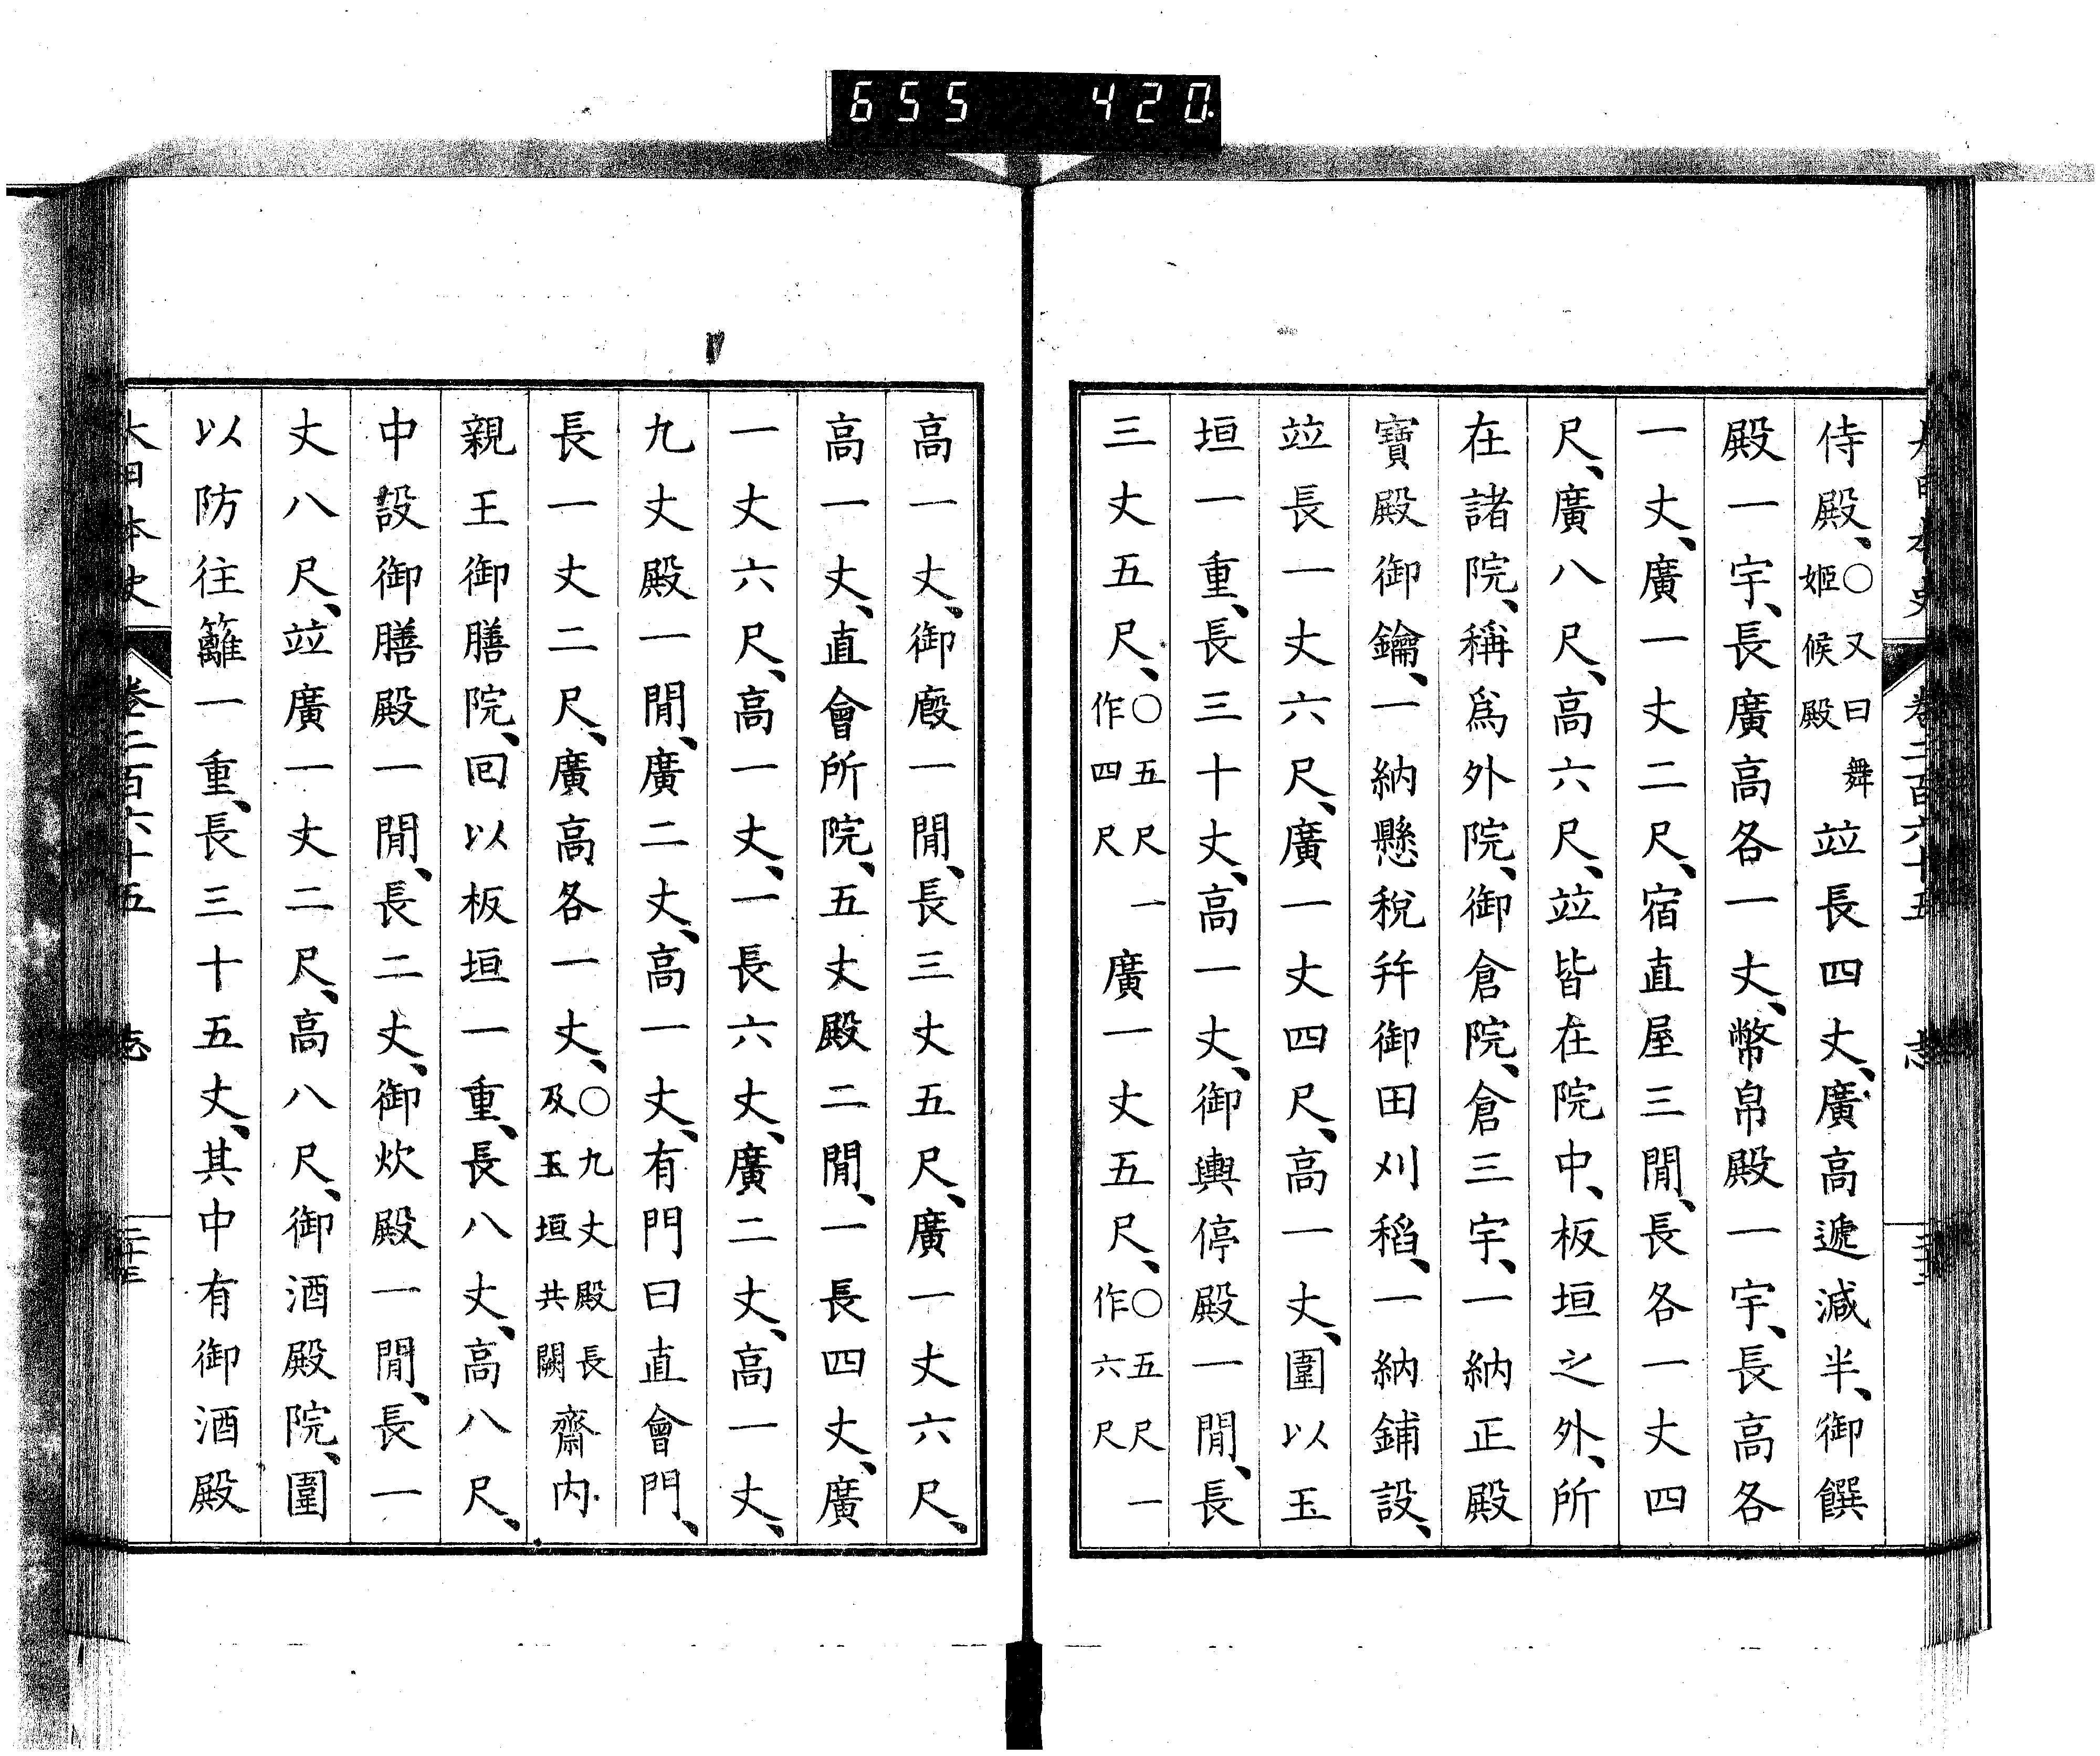 655 420
侍殿、〇又曰舞姬候殿竝長四丈、廣高遞減半、御饌
殿一宇、長廣高各一丈、幣帛殿一宇、長高各
一丈、廣一丈二尺、宿直屋三閒、長各一丈四
尺、廣八尺、高六尺、竝皆在院中、板垣之外、所
在諸院、稱爲外院、御倉院、倉三宇、一納正殿
寶殿御鑰、一納懸稅幷御田刈稻、一納鋪設、
竝長一丈六尺、廣一丈四尺、高一丈、圍以玉
垣一重、長三十丈、高一丈、御輿停殿一閒、長
三丈五尺、〇五尺一作四尺廣一丈五尺、〇五尺一作六尺
高一丈、御廏一閒、長三丈五尺、廣一丈六尺、
高一丈、直會所院、五丈殿二閒、一長四丈、廣
一丈六尺、高一丈、一長六丈、廣二丈、高一丈、
九丈殿一閒、廣二丈、高一丈、有門曰直會門、
長一丈二尺、廣高各一丈、〇九丈殿長及玉垣共闕齋內
親王御膳院、回以板垣一重、長八丈、高八尺、
中設御膳殿一閒、長二丈、御炊殿一閒、長一
丈八尺、竝廣一丈二尺、高八尺、御酒殿院、圍
以防往籬一重、長三十五丈、其中有御酒殿
大日本史 卷二百六十五 志